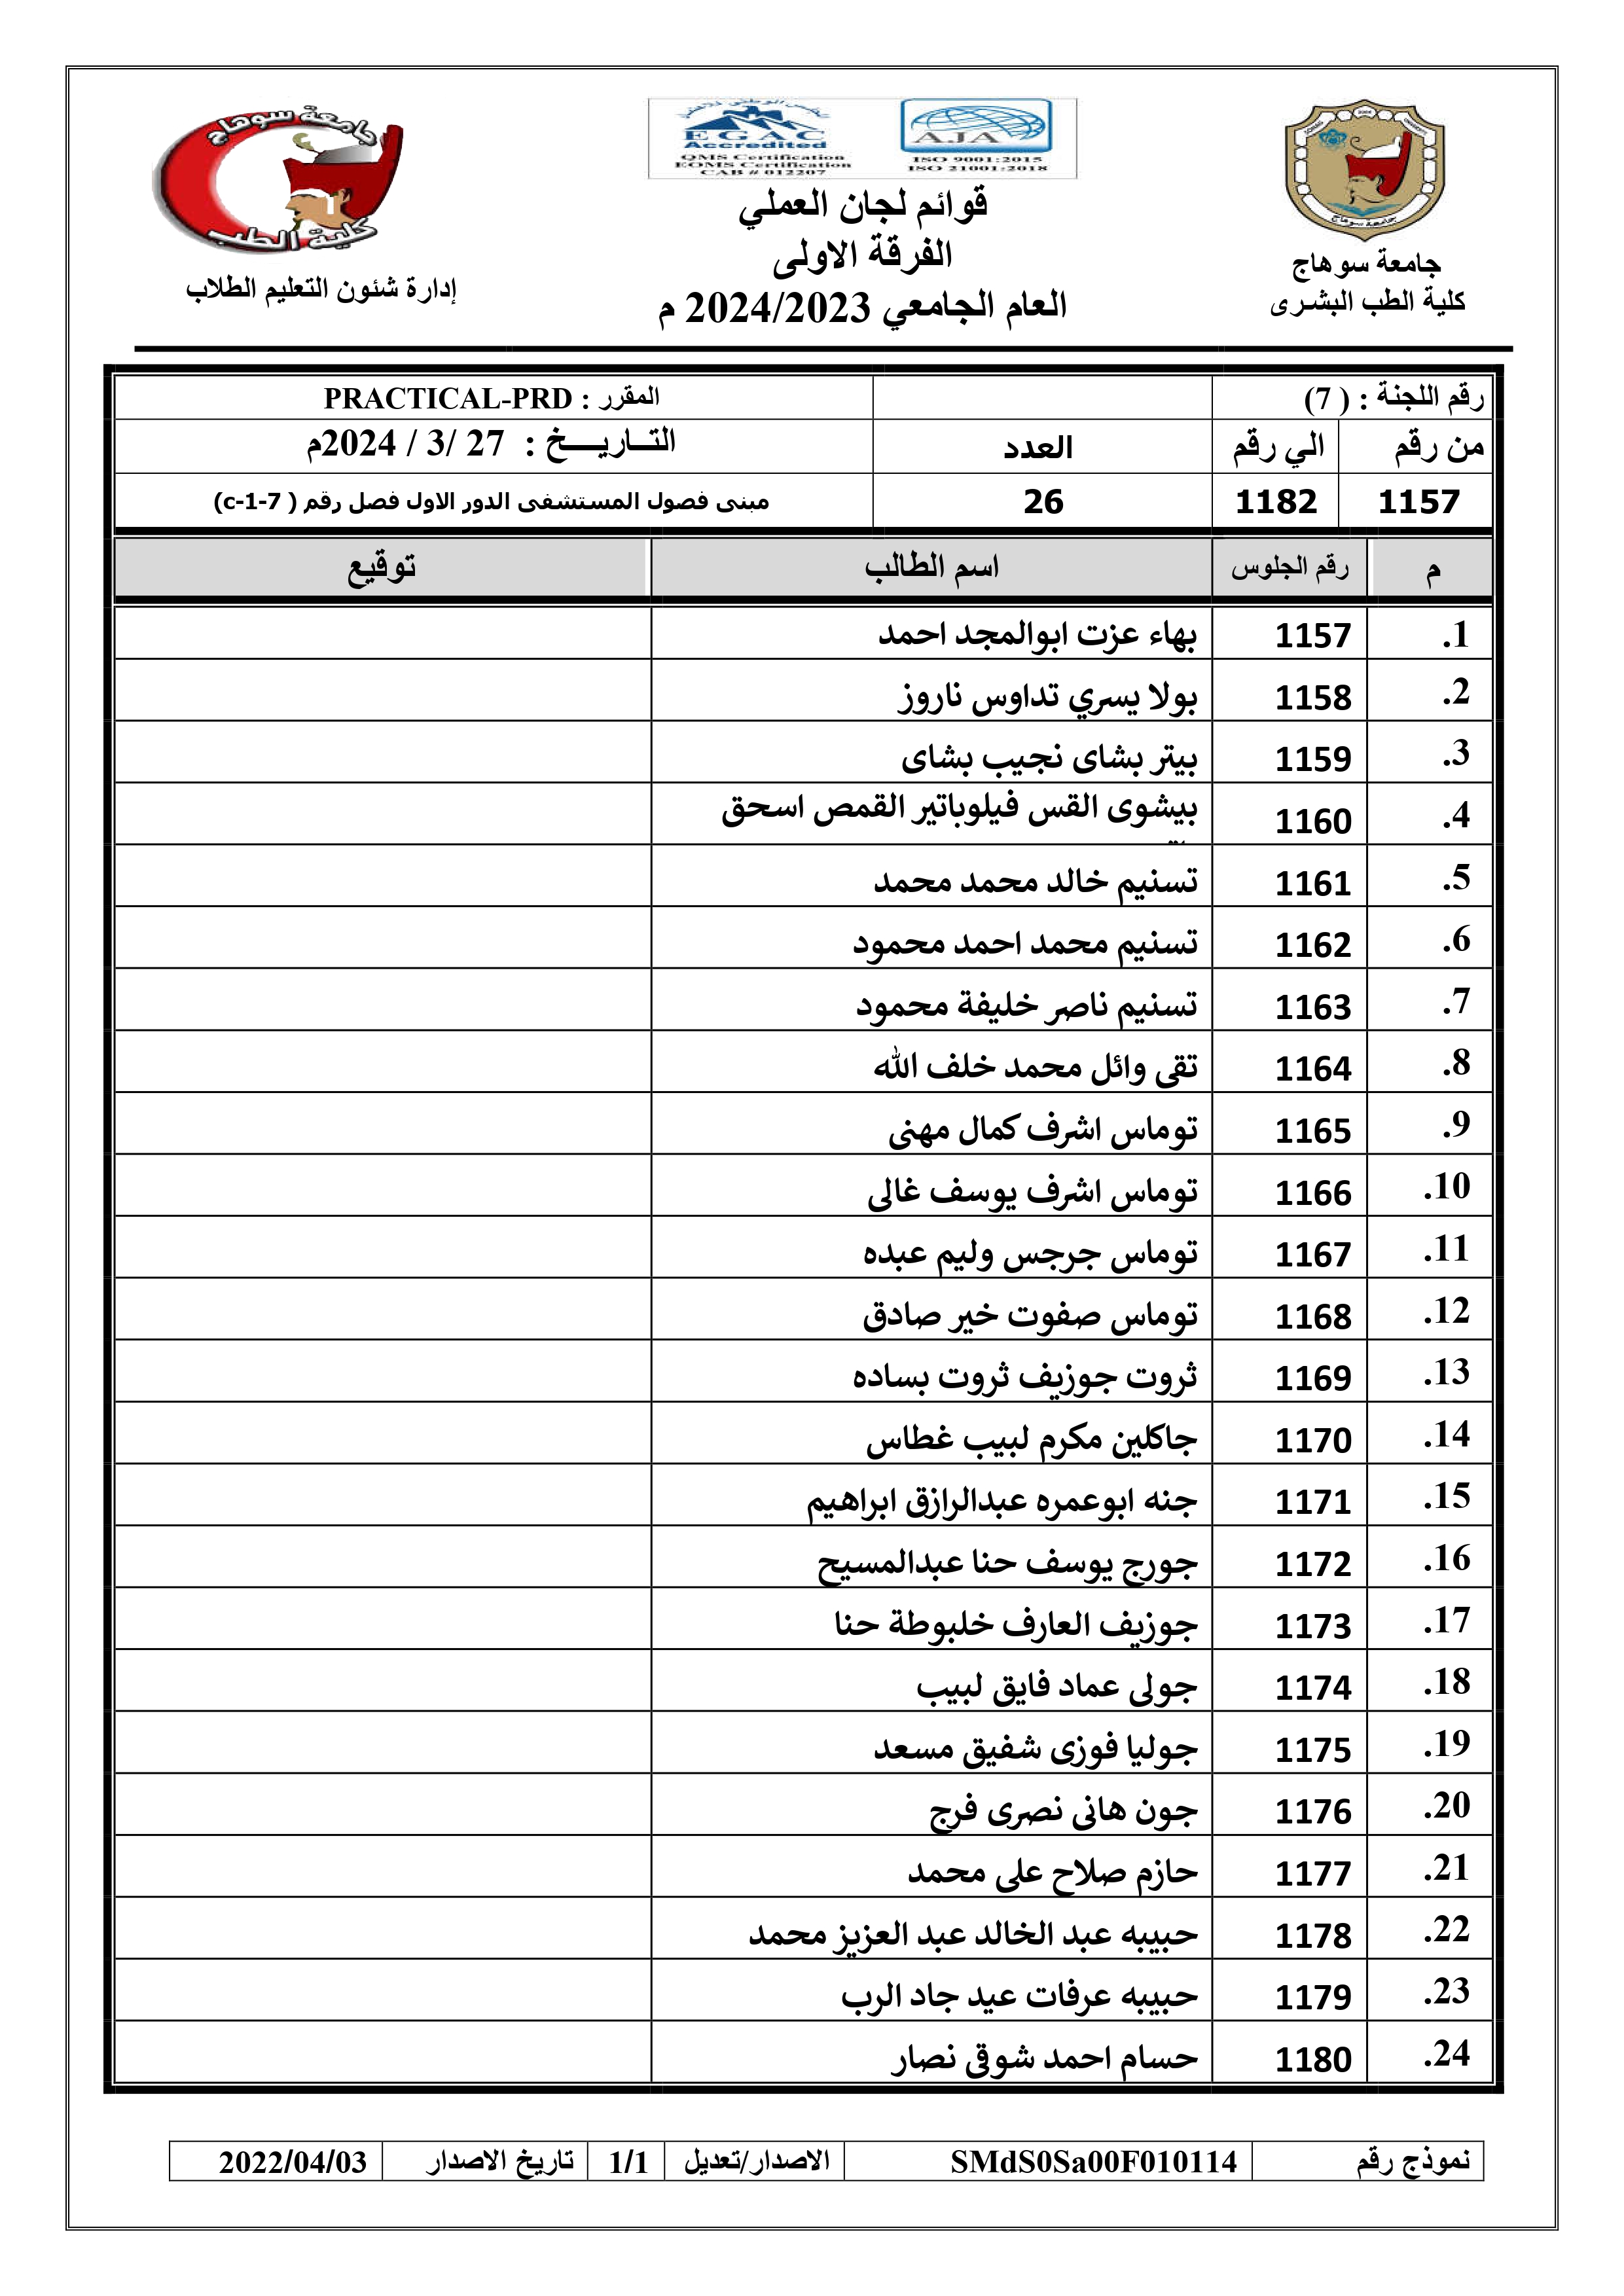 جامعة سوهاج
كلية الطب البشرى
EGAC
Accredited
QMS Certification
EOMS Certification
CAB # 012207
AJA
ISO 9001:2015
ISO 21001:2018
قوائم لجان العملي
الفرقة الاولى
العام الجامعي 2024/2023 م
جامعة سوهاج
كلية الطب
إدارة شئون التعليم الطلاب
رقم اللجنة : ( 7) المقرر : PRACTICAL-PRD
من رقم الي رقم العدد التـــاريــــخ : 27 /3 / 2024م
1157 1182 26 مبنى فصول المستشفى الدور الاول فصل رقم ( c-1-7)
م رقم الجلوس اسم الطالب توقيع
1. 1157 بهاء عزت ابوالمجد احمد
2. 1158 بولا يسري تداوس ناروز
3. 1159 بيتر بشاى نجيب بشاى
4. 1160 بيشوى القس فيلوباتير القمص اسحق
5. 1161 تسنيم خالد محمد محمد
6. 1162 تسنيم محمد احمد محمود
7. 1163 تسنيم ناصر خليفة محمود
8. 1164 تقى وائل محمد خلف الله
9. 1165 توماس اشرف كمال مهنى
10. 1166 توماس اشرف يوسف غالى
11. 1167 توماس جرجس وليم عبده
12. 1168 توماس صفوت خير صادق
13. 1169 ثروت جوزيف ثروت بساده
14. 1170 جاكلين مكرم لبيب غطاس
15. 1171 جنه ابوعمره عبدالرازق ابراهيم
16. 1172 جورج يوسف حنا عبدالمسيح
17. 1173 جوزيف العارف خلبوطة حنا
18. 1174 جولى عماد فايق لبيب
19. 1175 جوليا فوزى شفيق مسعد
20. 1176 جون هانى نصرى فرج
21. 1177 حازم صلاح على محمد
22. 1178 حبيبه عبد الخالد عبد العزيز محمد
23. 1179 حبيبه عرفات عيد جاد الرب
24. 1180 حسام احمد شوقى نصار
نموذج رقم SMdS0Sa00F010114 الاصدار/تعديل 1/1 تاريخ الاصدار 2022/04/03